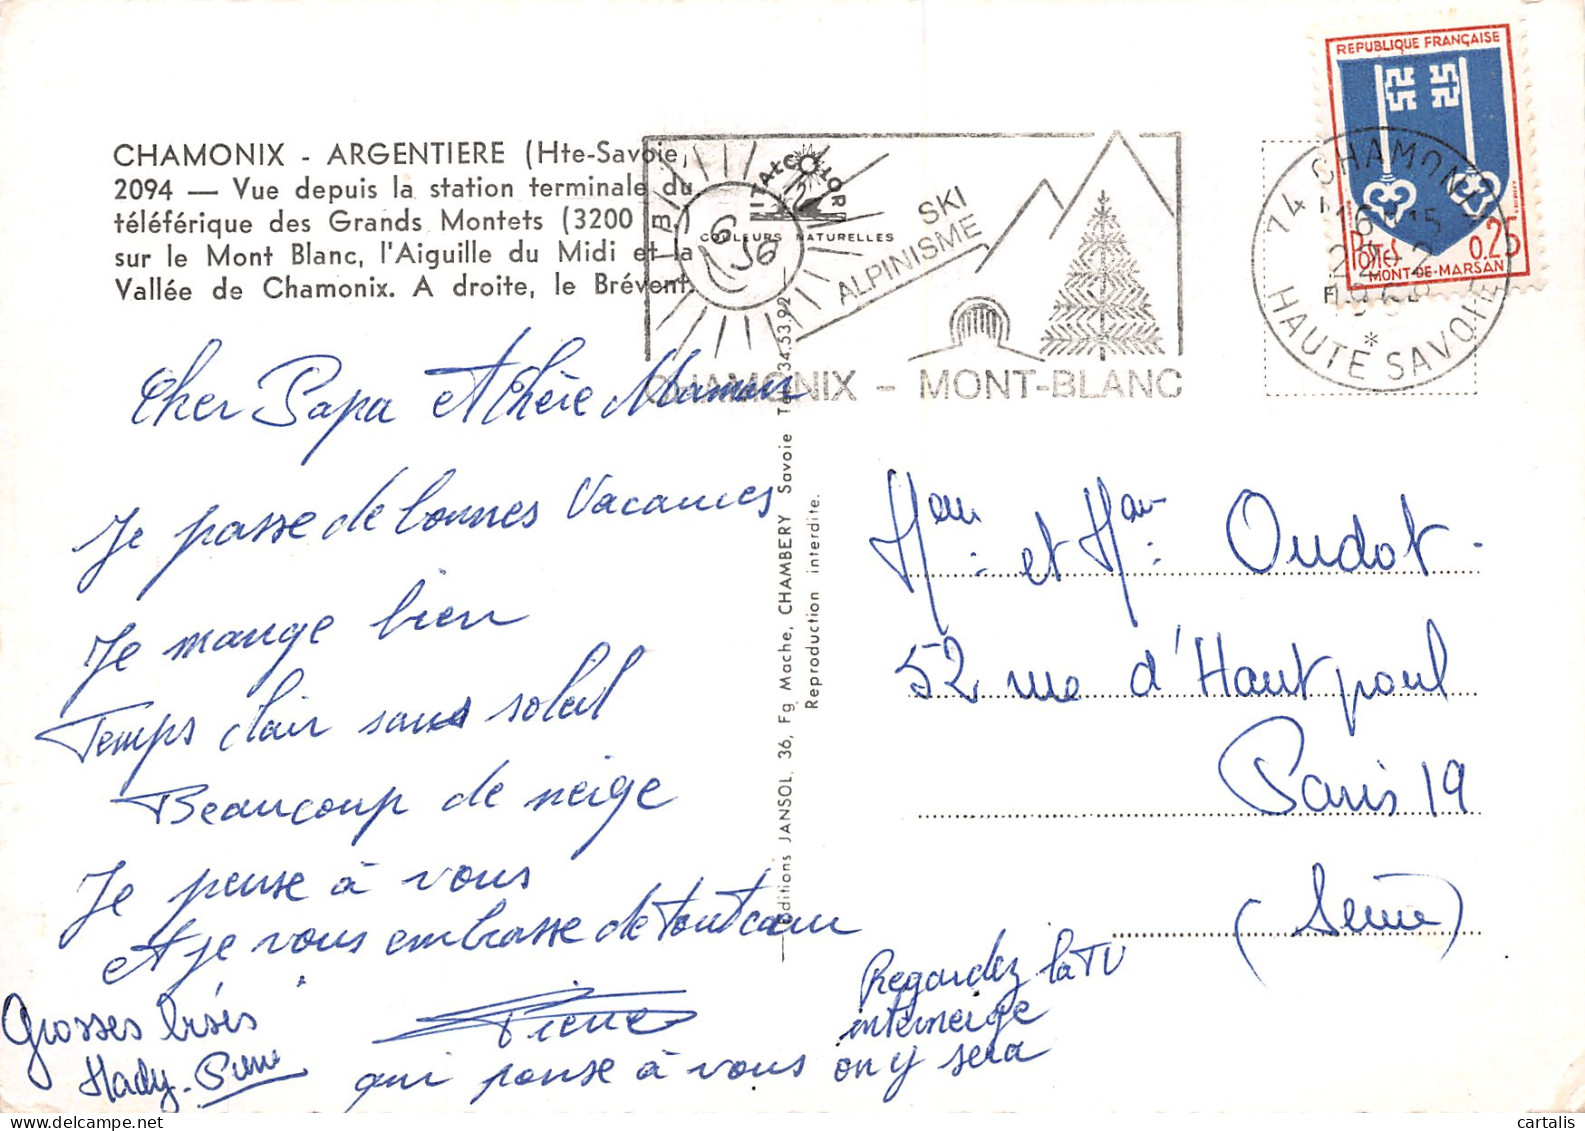 CHAMONIX - ARGENTIERE (Hte-Savoie)
2094 — Vue depuis la station terminale du
téléférique des Grands Montets (3200 m.)
sur le Mont Blanc, l'Aiguille du Midi et la
Vallée de Chamonix. A droite, le Brévent.
ITALCOLOR
COULEURS NATURELLES
SKI
ALPINISME
CHAMONIX - MONT-BLANC
REPUBLIQUE FRANÇAISE
Postes 0,25
MONT-DE-MARSAN
74 CHAMONIX
16 H 15
HAUTE SAVOIE
Cher Papa et Chère Maman
Je passe de bonnes Vacances
Je mange bien
Temps clair sans soleil
Beaucoup de neige
Je pense à vous
Et je vous embrasse de tout cœur
Pierre
qui pense à vous
Grosses bises
Hady-Pierre
Regardez la TV
interneige
on y sera
Editions JANSOL, 36, Fg Mache, CHAMBERY Savoie Tél. 34.53.92
Reproduction interdite.
et Oudot.
52 rue d'Hautpoul
Paris 19
(Seine)
cartalis